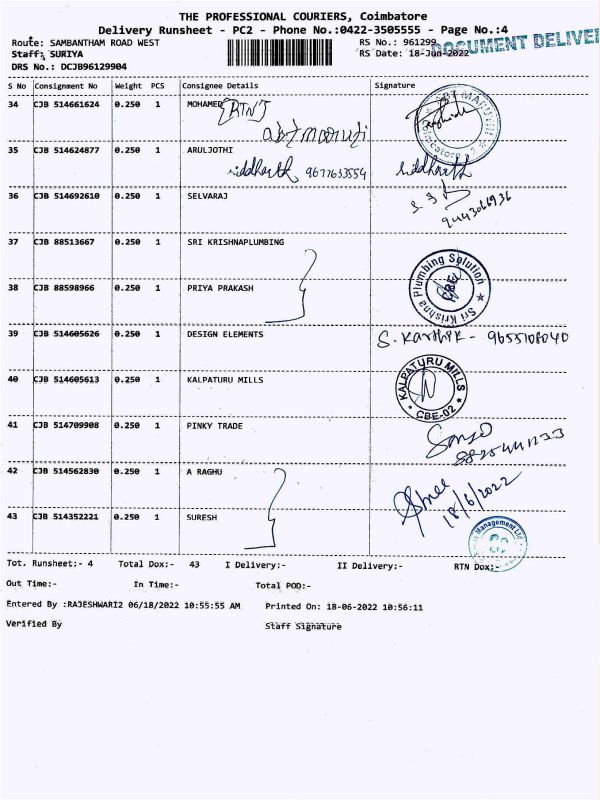 THE PROFESSIONAL COURIERS, Coimbatore
Delivery Runsheet - PC2 - Phone No.:0422-3505555 - Page No.:4
Route: SAMBANTHAM ROAD WEST
RS No.: 961299
DOCUMENT DELIVE
Staff: SURIYA
RS Date: 18-Jun-2022
DRS No.: DCJB96129904
S No Consignment No Weight PCS Consignee Details Signature
34 CJB 514661624 0.250 1 MOHAMED
35 CJB 514624877 0.250 1 ARULJOTHI
siddharth 9677633554 siddharth
36 CJB 514692610 0.250 1 SELVARAJ
9443066936
37 CJB 88513667 0.250 1 SRI KRISHNAPLUMBING
Sri Krishna Plumbing Solution
CBE
38 CJB 88598966 0.250 1 PRIYA PRAKASH
39 CJB 514605626 0.250 1 DESIGN ELEMENTS
S. Karthik - 9655108040
40 CJB 514605613 0.250 1 KALPATURU MILLS
KALPATURU MILLS
CBE-02
41 CJB 514709908 0.250 1 PINKY TRADE
42 CJB 514562830 0.250 1 A RAGHU
18/6/2022
43 CJB 514352221 0.250 1 SURESH
Management
Tot. Runsheet;- 4 Total Dox:- 43 I Delivery:- II Delivery:- RTN Dox:-
Out Time:- In Time:- Total POD:-
Entered By :RAJESHWARI2 06/18/2022 10:55:55 AM Printed On: 18-06-2022 10:56:11
Verified By Staff Signature